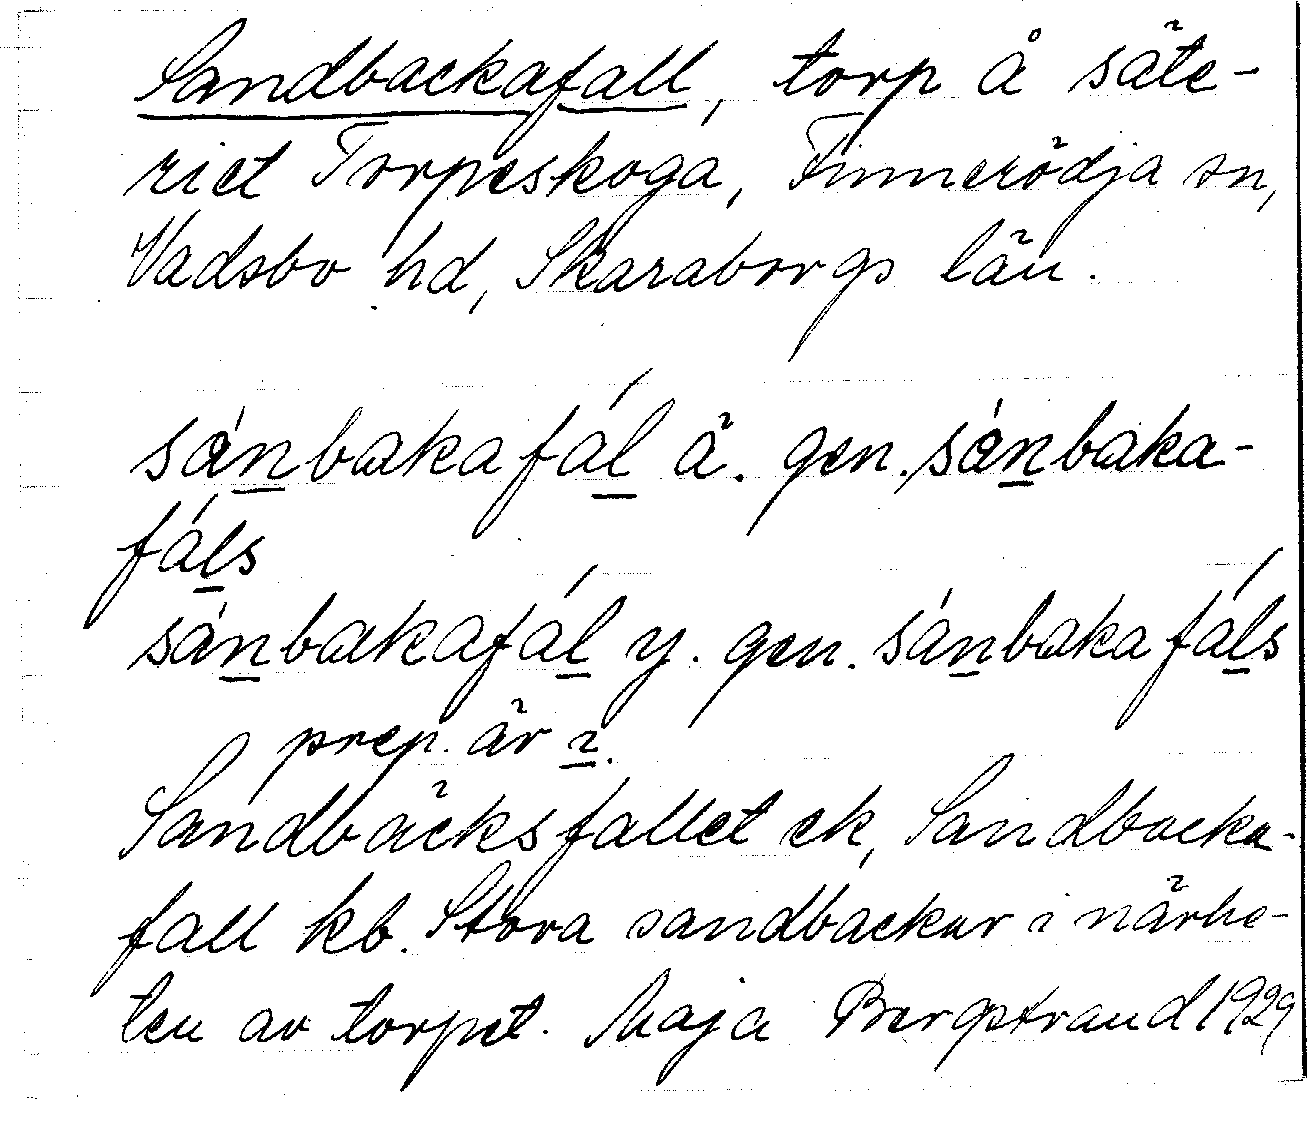 Sandbackafall, torp å säte-
riet Torpeskoga, Finnerödja sn,
Vadsbo hd, Skaraborgs län.
sánbakafál ä. gen. sánbaka-
fáls
sánbakafál y. gen. sánbakafáls
prep. är
Sandbäcksfallet ek, Sandbacka-
fall kb. Stora sandbackar i närhe-
ten av torpet. Maja Bergstrand 1929